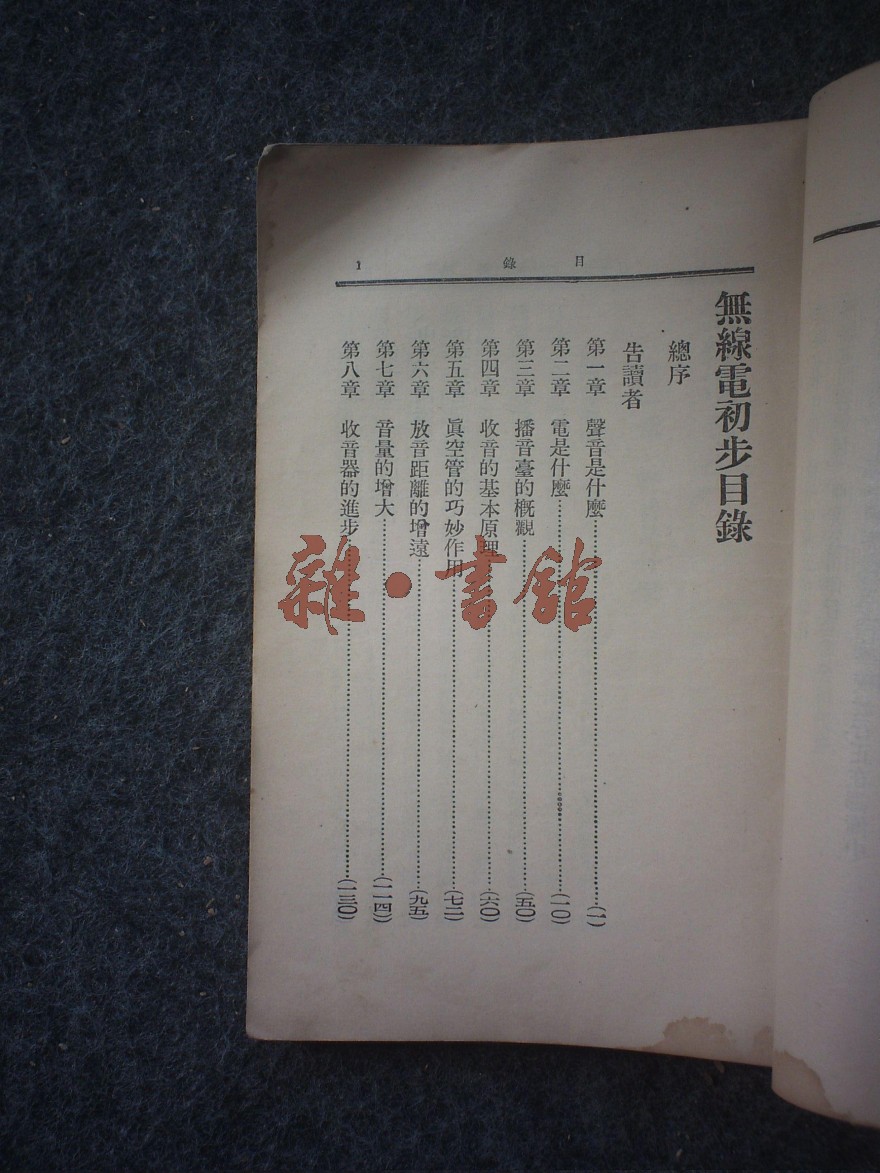 目錄
1
無線電初步目錄
總序
告讀者
第一章 聲音是什麼……(一)
第二章 電是什麼……(一〇)
第三章 播音臺的概觀……(五〇)
第四章 收音的基本原理……(六〇)
第五章 眞空管的巧妙作用……(七二)
第六章 放音距離的增遠……(九五)
第七章 音量的增大……(一一四)
第八章 收音器的進步……(一三〇)
雜·書館